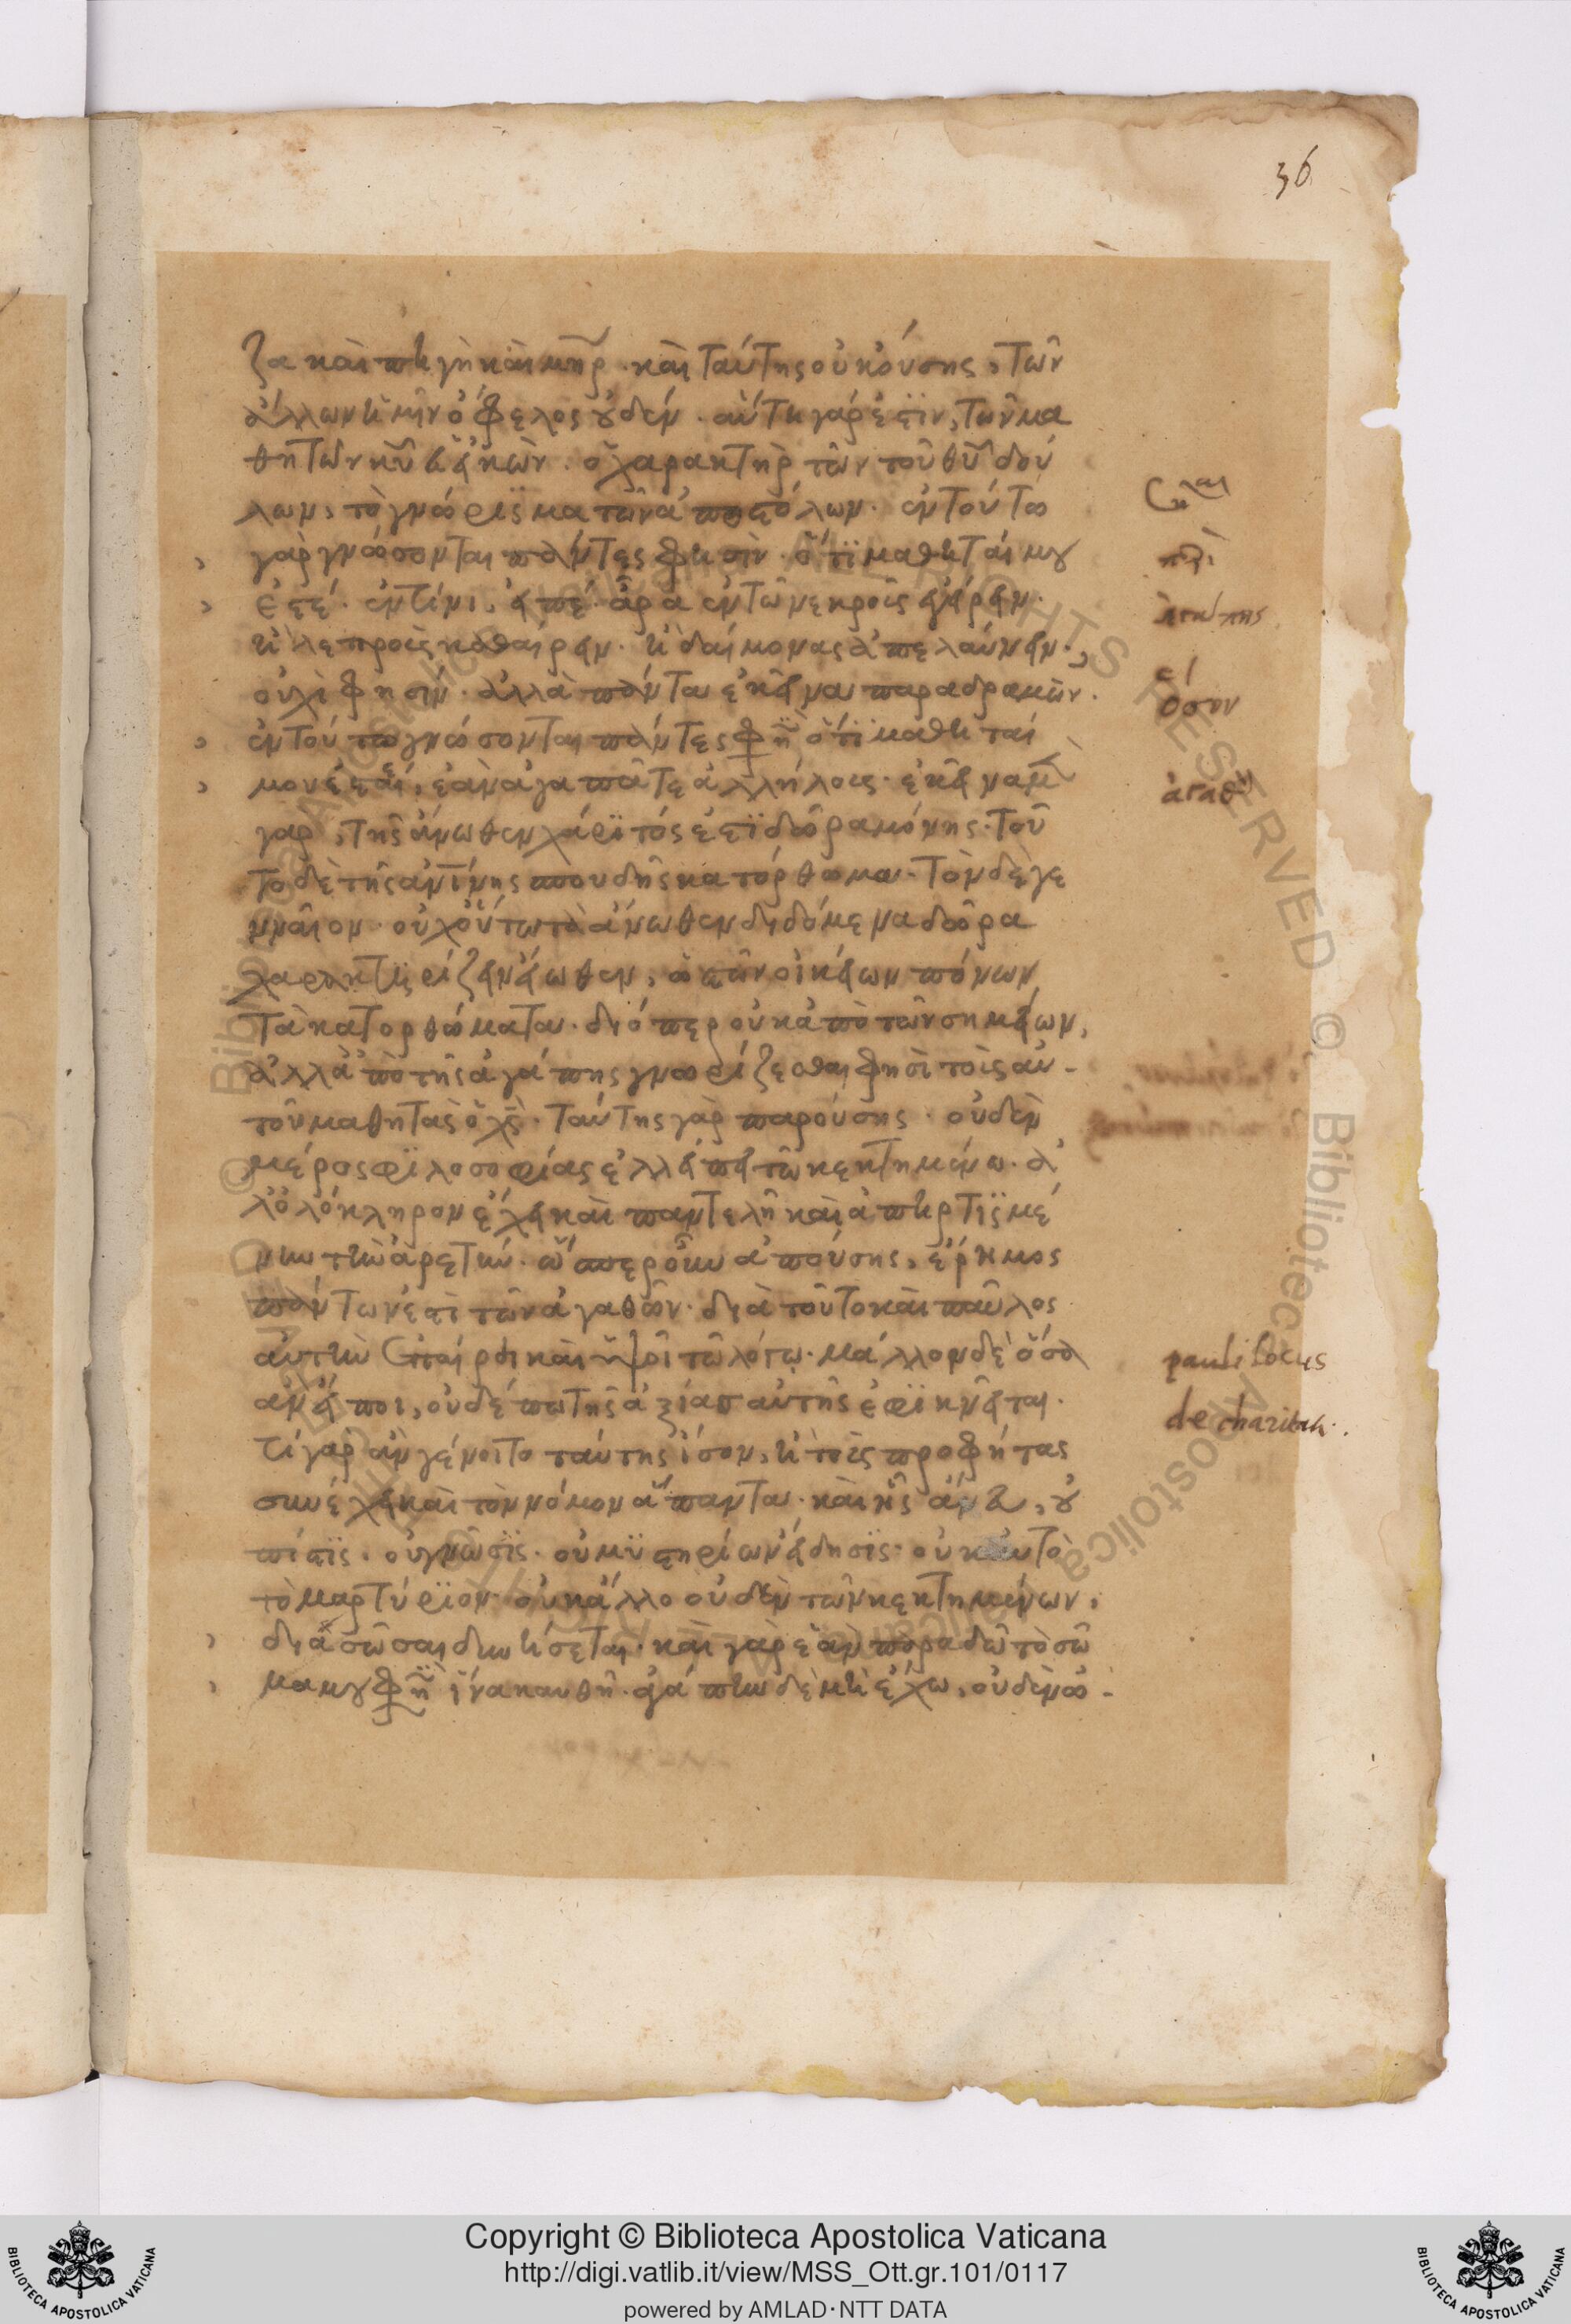 36
ζα καὶ πηγὴ καὶ μηρ̃. καὶ ταύτης οὐκ οὔσης, τῶν
ἄλλων ἡμῖν ὄφελος οὐδέν. αὕτη γάρ ἐστϊν, τῶν μα
θητῶν κῦ ἡ εἰκών. ὁ χαρακτὴρ τῶν τοῦ θῦ δού
λων, τὸ γνώρϊσμα τῶν ἀποστόλων. ἐν τούτω
γὰρ γνώσονται πάντες φησὶν. ὅτϊ μαθηταί μου
ἐστέ. ἐν τίνι, εἰπέ. ἆρα ἐν τῶ νεκροὺς ἐγείρειν.
ἢ λεπροὺς καθαίρειν. ἢ δαίμονας ἀπελαύνειν.
οὐχί φησιν. ἀλλὰ πάντα ἐκεῖνα παραδραμὼν.
ἐν τούτω γνώσονται πάντες φη̃ ὅτϊ μαθηταί
μου ἐστέ, ἐὰν ἀγαπᾶτε ἀλλήλους. ἐκεῖνα μ̃
γαρ, τῆς ἄνωθεν χάρϊτός ἐστϊ δῶρα μόνης. τοῦ
το δὲ τῆς ἀν̅ίνης σπουδῆς κατόρθωμα. τὸν δὲ γε
νναῖον. οὐχ οὕτω τὰ ἄνωθεν διδόμενα δῶρα
χαρακτηρίζειν εἴωθεν, ὡς τῶν οἰκείων πόνων
τὰ κατορθώματα. διόπερ οὐκ ἀπὸ τῶν σημείων,
ἀλλ' ἀπὸ τῆς ἀγάπης γνωρίζεσθαι φησὶ τοὺς αὐ-
τοῦ μαθητὰς ὁ χς̅. ταύτης γὰρ παρούσης. οὐδὲν
μέρος φϊλοσοφίας ἐλλείπει τῶ κεκτημένω. ἀλ
λ' ὁλόκληρον ἔχει καὶ παντελῆ καὶ ἀπηρτϊσμέ
νην τὴν ἀρετήν. ὥσπερ οὖν ἀπούσης, ἔρημος
πάντων ἐστὶ τῶν ἀγαθῶν. διὰ τοῦτο καὶ παῦλος
αὐτὴν ἐπαίρει καὶ ὑψοῖ τῶ λόγω. μάλλον δὲ ὅσα
ἂν εἴποι, οὐδέπω τῆς ἀξίας αὐτῆς ἐφϊκνεῖται.
τί γὰρ ἂν γένοιτο ταύτης ἴσον, ἢ τοὺς προφήτας
συνέχει καὶ τὸν νόμον ἅπαντα. καὶ ἧς ἄνευ, οὐ
πίστϊς. οὐ γνῶσϊς. οὐ μϋστηρίων εἴδησϊς. οὐκ αὐτὸ
τὸ μαρτύρϊον. οὐκ ἄλλο οὐδὲν τῶν κεκτημένων,
διασῶσαι δυνήσεται. καὶ γὰρ ἐὰν παραδῶ τὸ σῶ
μα μου φη̃ ἵνα καυθῆ. ἀγάπην δὲ μὴ ἔχω, οὐδὲν ὠ-
ἀγάπης
ὅσον
ἀγαθὸν
pauli locus
de charitate.
Copyright © Biblioteca Apostolica Vaticana
http://digi.vatlib.it/view/MSS_Ott.gr.101/0117
powered by AMLAD·NTT DATA
BIBLIOTECA APOSTOLICA VATICANA
BIBLIOTECA APOSTOLICA VATICANA